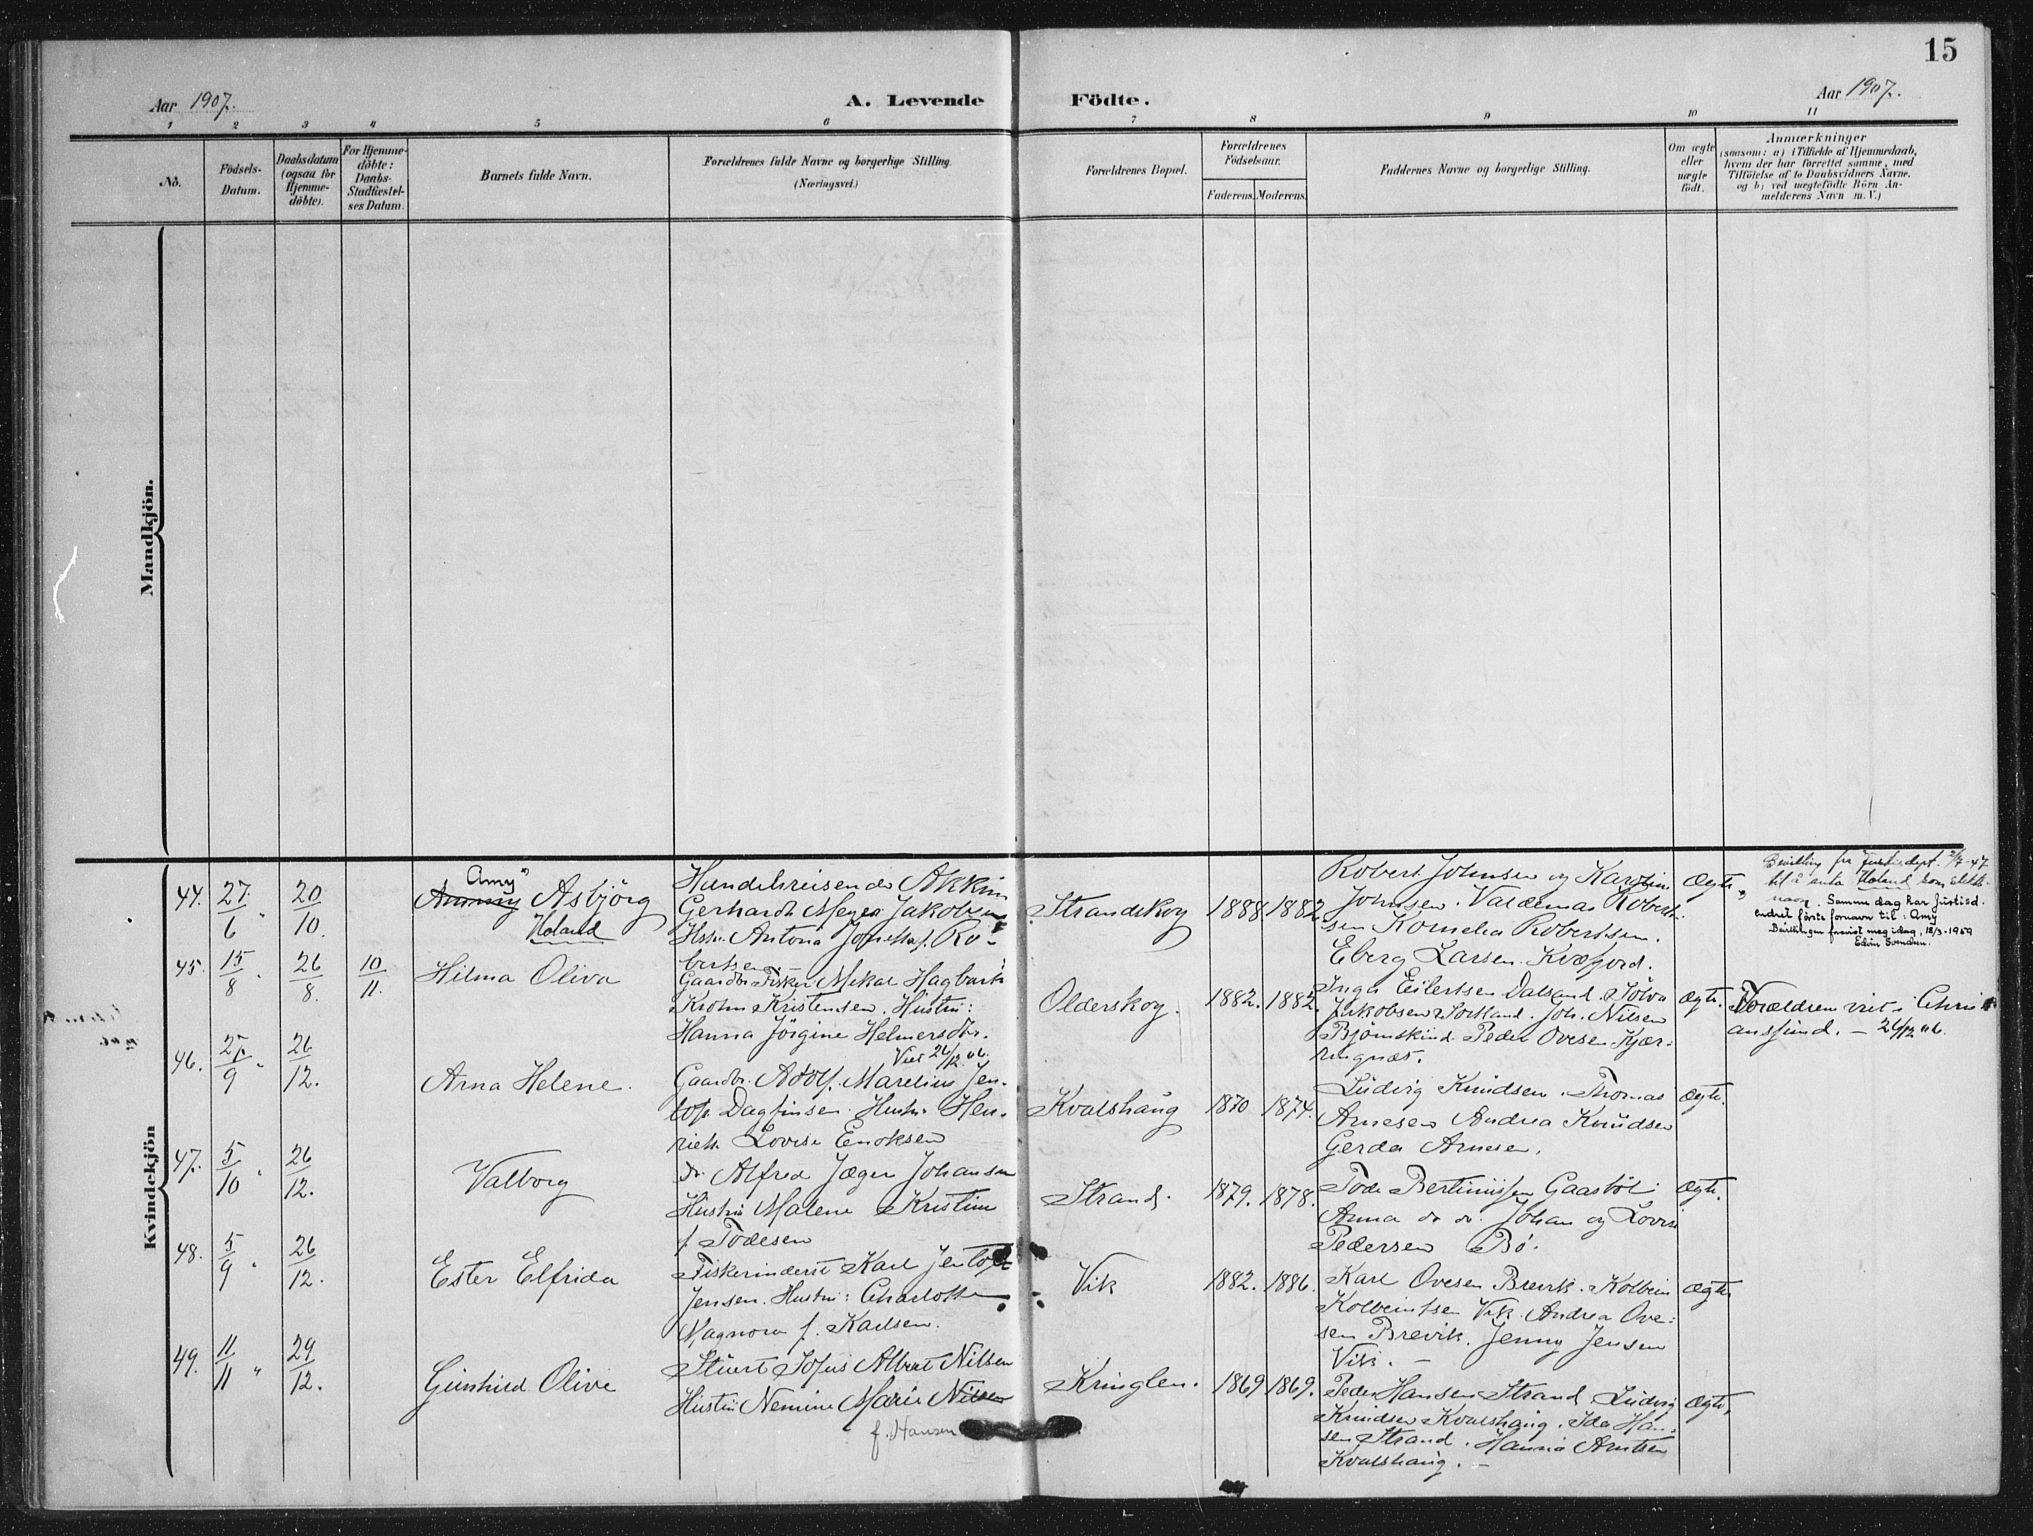 15
Aar 1907.
A. Levende Födte.
Aar 1907.
1 2 3 4 5 6 7 8 9 10 11
No.
Födsels-
Datum.
Daabsdatum
(ogsaa for
Hjemme-
döbte).
For Hjemme-
döbte:
Daabs-
Stadfæstel-
ses Datum.
Barnets fulde Navn.
Forældrenes fulde Navne og borgerlige Stilling.
(Næringsvei.)
Forældrenes Bopæl.
Forældrenes
Födselsaar.
Faderens. Moderens.
Faddernes Navne og borgerlige Stilling.
Om ægte
eller
uægte
födt.
Anmærkninger
(saasom: a) i Tilfælde af Hjemmedaab,
hvem der har forrettet samme, med
Tilföielse af to Daabsvidners Navne.
og b) ved uægtefödte Börn An-
melderens Navn m. V.)
Mandkjön.
Kvindekjön
44. 27/6 20/10.
Amy
Asbjörg
Holand
Handelsreisende
Gerhardt Meyer Jakobsen
Hstr. Antona f. Ro-
bertsen
Strandskog
1888 1882
Robert Johnsen og Karoline
Johnsen. Valdemar Roberts-
sen Kornelia Robertsen.
Eberg Larsen. Kvæfjord.
Ægte
Bevilling fra Justisdept. 2/7-47
til å anta Holand som slekts-
navn. Samme dag har Justisd.
endret første fornavn til: Amy
Bevillingen forevist meg idag, 18/3-1959
Edvin Svendsen.
45. 15/8 26/8. 10/11.
Hilma Oliva
Gaardbr. Fisker Mikal Hagbart
Krohn Kristensen. Hustru:
Hanna Jörgine Helmersdtr.
Viet 26/12 06.
Olderskog.
1882. 1882.
Inga Eilertsen Dalsand.
Jakobsen Sortland. Joh. Nilsen
Bjørnskind. Peder Ovesen Kjær-
ringnæs.
Ægte.
Forældrene viet i Christi
ansund. — 26/12 06.
46. 27/9 26/12.
Arna Helene.
Gaardbr. Adolf Marelius Jen-
toft Dagfinsen. Hustru Hen-
rietta Lovise Enoksen
Kvalshaug
1870 1874.
Ludvig Knudsen. Thomas
Arnesen Andrea Knudsen
Gerda Arnesen.
Ægte.
47. 5/10 26/12.
Valborg
do. Alfred Jæger Johansen
Hustru Malene Kristine
f. Todesen
Strand.
1879. 1878.
Tode Bertinussen Gaasböl.
Anna do do. Johan og Lovise
Pedersen Bö.
Ægte.
48. 5/9 26/12.
Ester Elfrida
Fiskerinderst Karl Jentoft
Jensen. Hustru: Charlotte
Ragnora f. Karlsen.
Vik
1882. 1886.
Karl Ovesen Brevik. Kolbein
Kolbeinsen Vik. Andrea Ove-
sen Brevik. Jenny Jensen
Vik. —
Ægte
49. 11/11 29/12.
Gunhild Olive
Stuert Sofus Albert Nilsen
Hustru Nemine Marie Nilsen
f. Hansen
Kringlen.
1869 1869.
Peder Hansen Strand. Ludvig
Knudsen Kvalshaug. Ida Han-
sen Strand. Hanna Arntsen
Kvalshaug. —
Ægte.